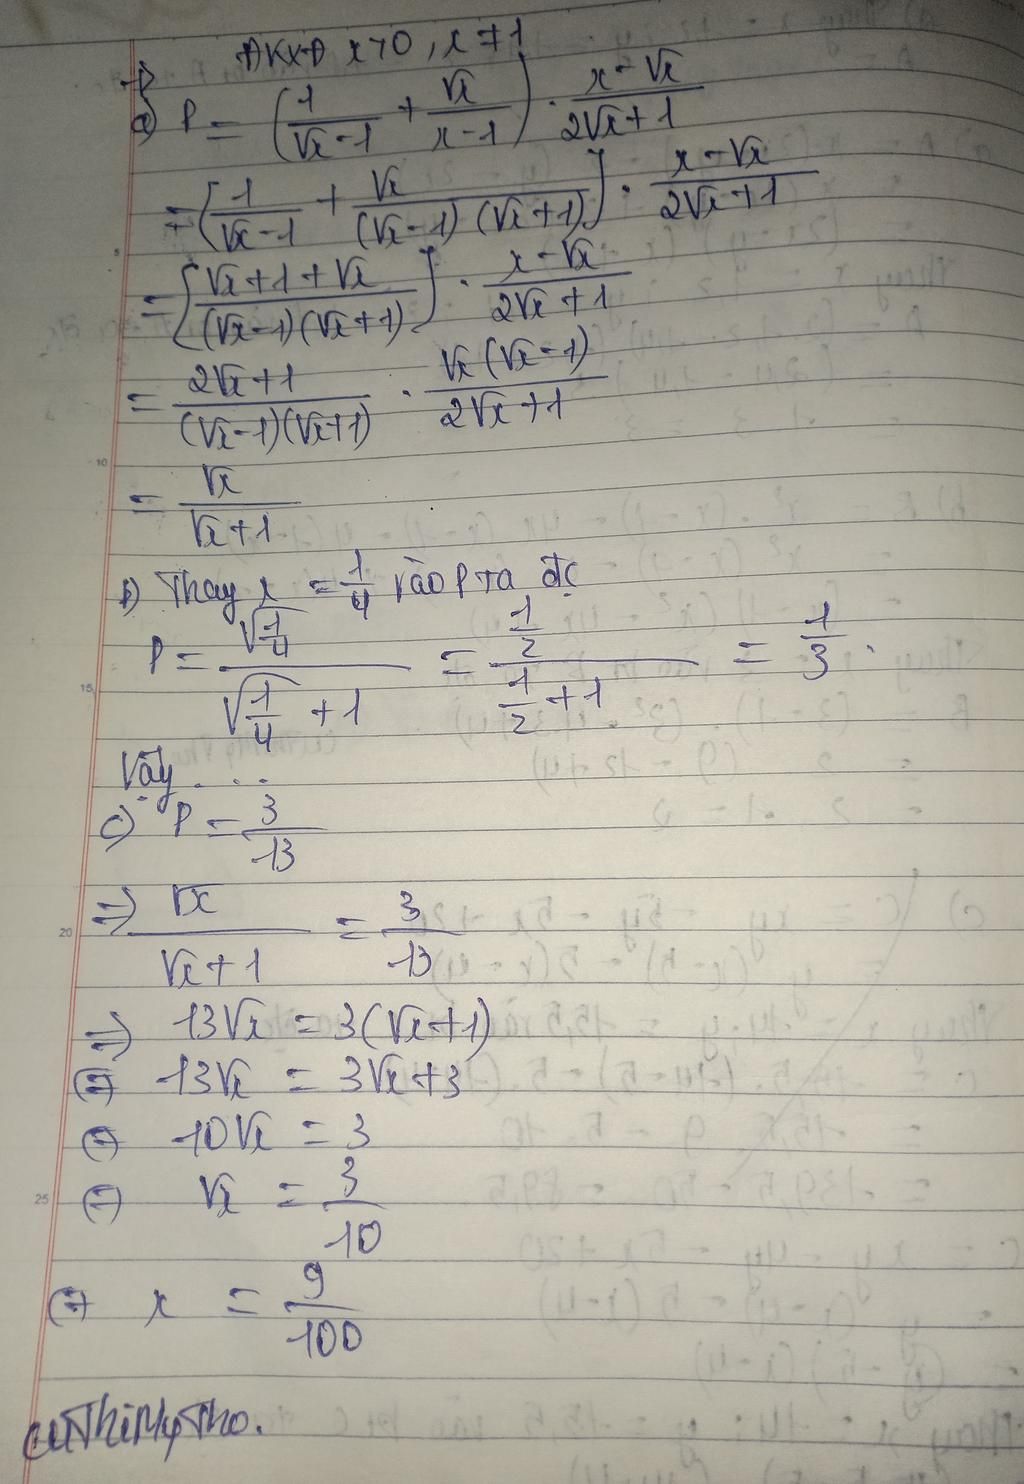 ĐKXĐ x>0, x≠1
a) P = (1/(√x-1) + √x/(x-1)) . (x-√x)/(2√x+1)
= [1/(√x-1) + √x/((√x-1)(√x+1))] . (x-√x)/(2√x+1)
= [(√x+1+√x)/((√x-1)(√x+1))] . (x-√x)/(2√x+1)
= (2√x+1)/((√x-1)(√x+1)) . √x(√x-1)/(2√x+1)
= √x/(√x+1)
b) Thay x = 1/4 vào P ta đc
P = √(1/4)/(√(1/4)+1) = (1/2)/(1/2+1) = 1/3.
Vậy ...
c) P = 3/13
=> √x/(√x+1) = 3/13
=> 13√x = 3(√x+1)
(=) 13√x = 3√x+3
(=) 10√x = 3
(=) √x = 3/10
(=) x = 9/100
cuThiMyTho.
5
10
15
20
25